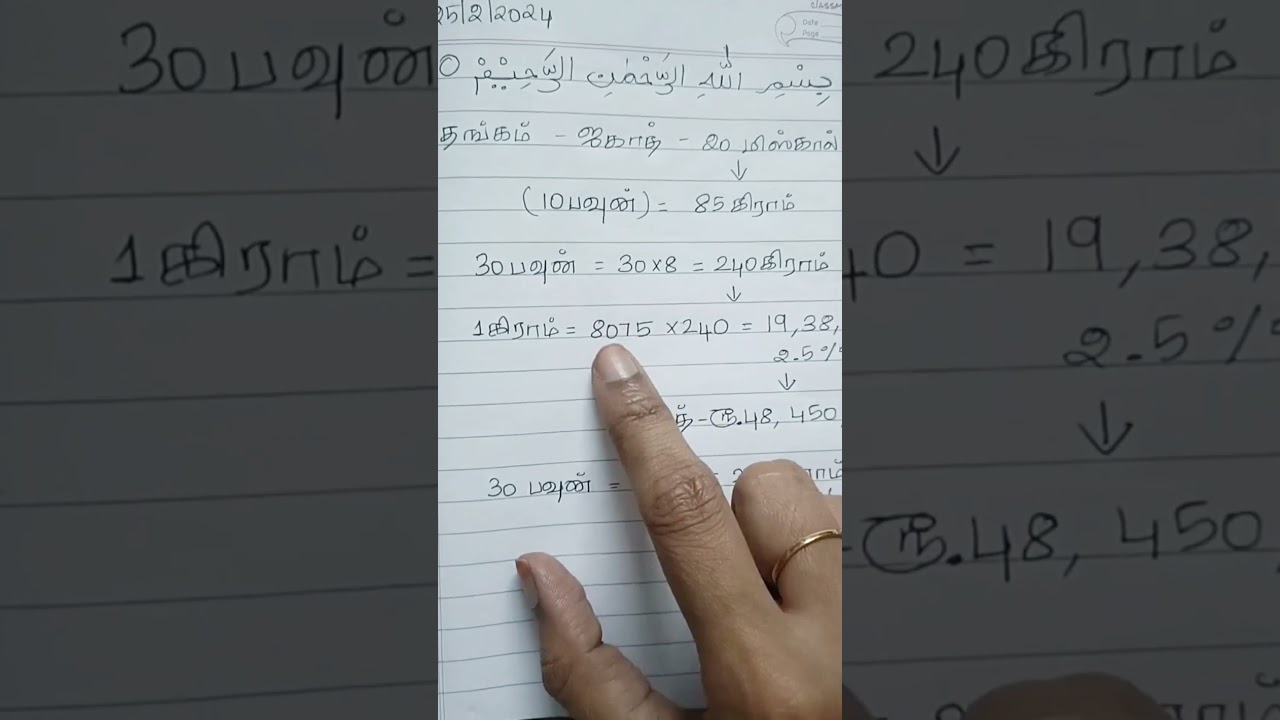 25/2/2024
CLASSM
Date
Page
بِسْمِ اللّٰهِ الرَّحْمٰنِ الرَّحِيْمِ
தங்கம் - ஜகாத் - 20 மிஸ்கால்
↓
(10 பவுன்) = 85 கிராம்
30 பவுன் = 30 x 8 = 240 கிராம்
↓
1 கிராம் = 8075 x 240 = 19,38,
2.5%
↓
த் - ரூ.48, 450
30 பவுன் =